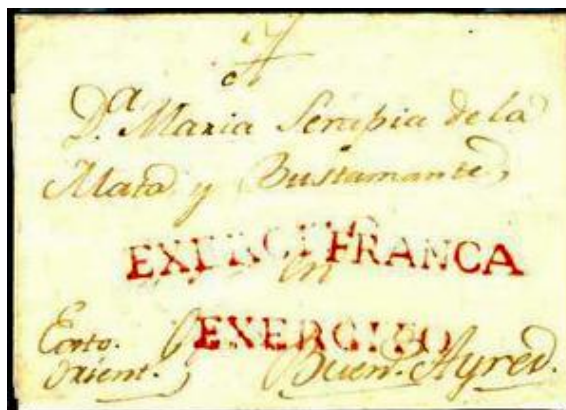 A
D.ª Maria Serapia de la
Mata y Bustamante,
EXERCITO FRANCA
en
EXERCITO
Exto.
orient.
Buen.ˢ Ayres.